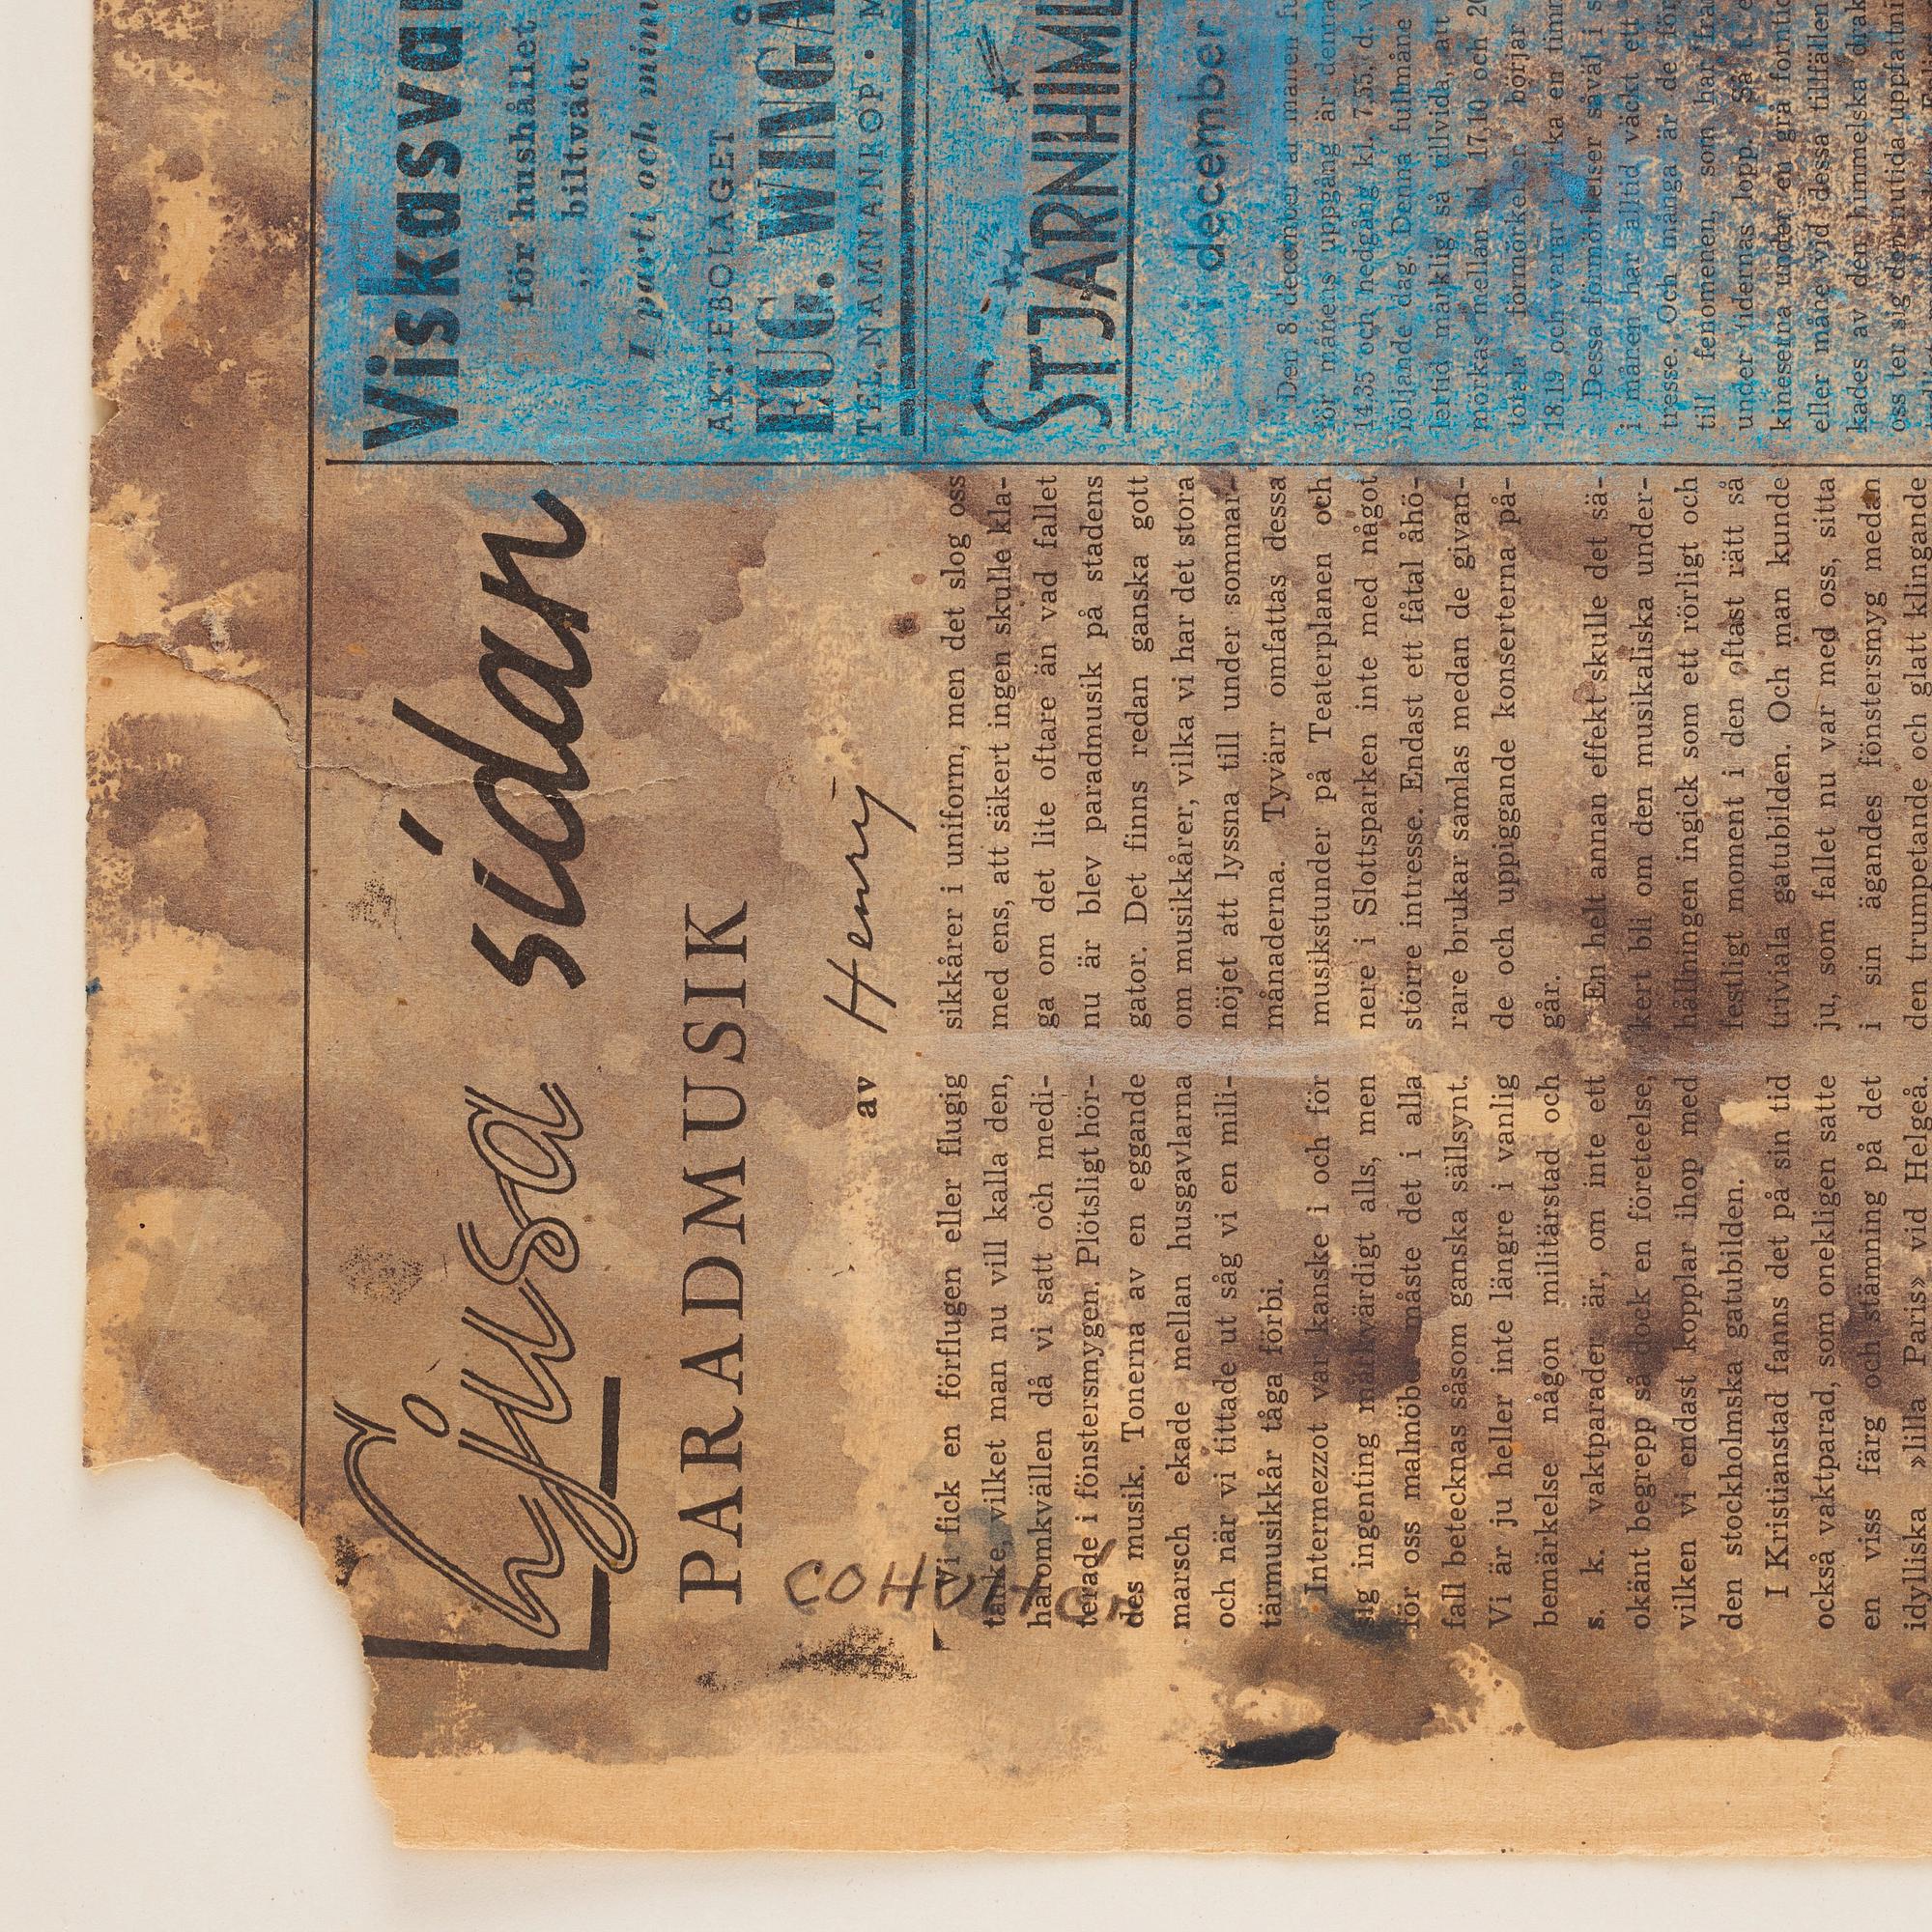 hjusa sidan
PARADMUSIK
av Henry
Vi fick en förflugen eller flugig
tanke, vilket man nu vill kalla den,
häromkvällen då vi satt och medi-
terade i fönstersmygen. Plötsligt hör-
des musik. Tonerna av en eggande
marsch ekade mellan husgavlarna
och när vi tittade ut såg vi en mili-
tärmusikkår tåga förbi.
Intermezzot var kanske i och för
sig ingenting märkvärdigt alls, men
för oss malmöbor måste det i alla
fall betecknas såsom ganska sällsynt.
Vi är ju heller inte längre i vanlig
bemärkelse någon militärstad och
s. k. vaktparader är, om inte ett
okänt begrepp så dock en företeelse,
vilken vi endast kopplar ihop med
den stockholmska gatubilden.
I Kristianstad fanns det på sin tid
också vaktparad, som onekligen satte
en viss färg och stämning på det
idylliska »lilla Paris» vid Helgeå.
sikkårer i uniform, men det slog oss
med ens, att säkert ingen skulle kla-
ga om det lite oftare än vad fallet
nu är blev paradmusik på stadens
gator. Det finns redan ganska gott
om musikkårer, vilka vi har det stora
nöjet att lyssna till under sommar-
månaderna. Tyvärr omfattas dessa
musikstunder på Teaterplanen och
nere i Slottsparken inte med något
större intresse. Endast ett fåtal åhö-
rare brukar samlas medan de givan-
de och uppiggande konserterna på-
går.
En helt annan effekt skulle det sä-
kert bli om den musikaliska under-
hållningen ingick som ett rörligt och
festligt moment i den oftast rätt så
triviala gatubilden. Och man kunde
ju, som fallet nu var med oss, sitta
i sin ägandes fönstersmyg medan
den trumpetande och glatt klingande
Viskasvar
för hushållet
„ biltvätt
I parti och min
AKTIEBOLAGET
EUG. WINGÅ
TEL. NAMNANROP. M
STJÄRNHIML
i december
Den 8 december är månen fu
för månens uppgång är denna
14.35 och nedgång kl. 7.55. d. v
följande dag. Denna fullmåne
lertid märklig så tillvida, att
mörkas mellan kl. 17.10 och 20
totala förmörkelsen börjar
18.19 och varar i cirka en timm
Dessa förmörkelser såväl i s
i månen har alltid väckt ett
tresse. Och många är de för
till fenomenen, som har fra
under tidernas lopp. Så t. e
kineserna under en grå forntid
eller måne vid dessa tillfällen
kades av den himmelska drak
oss ter sig den nutida uppfattni